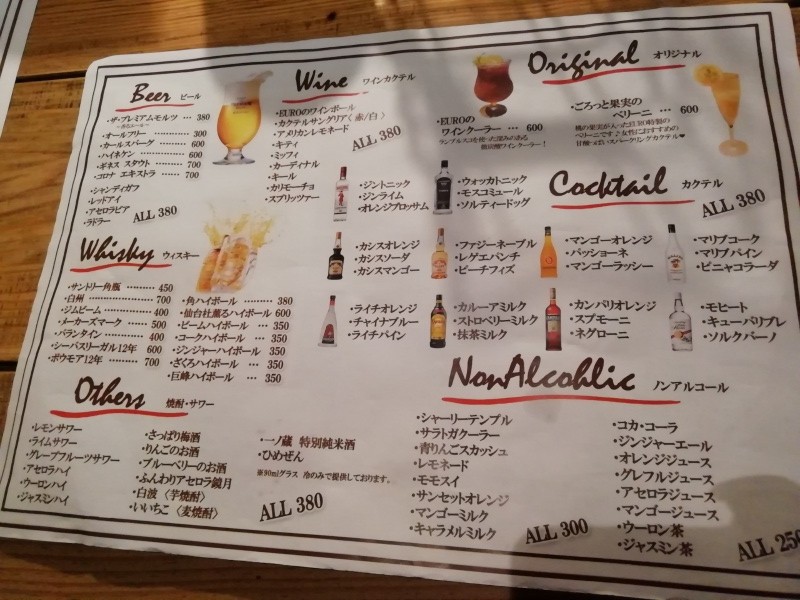 Beer ビール
・ザ・プレミアムモルツ … 380
・オールフリー ……… 300
・カールスバーグ …… 600
・ハイネケン ………… 600
・ギネス スタウト …… 700
・コロナ エキストラ …… 700
・シャンディガフ
・レッドアイ
・アセロラビア
・ラドラー
ALL 380
Wine ワインカクテル
・EUROのワインボール
・カクテルサングリア〈赤/白〉
・アメリカンレモネード
・キティ
・ミッフィ
・カーディナル
・キール
・カリモーチョ
・スプリッツァー
ALL 380
Original オリジナル
・EUROの
ワインクーラー … 600
ランブルスコを使った深みのある
微炭酸ワインクーラー!
・ごろっと果実の
ベリーニ … 600
桃の果実が入ったEURO特製の
ベリーニです♪女性におすすめの
甘酸っぱいスパークリングカクテル♥
Cocktail カクテル
ALL 380
・ジントニック
・ジンライム
・オレンジブロッサム
・ウォッカトニック
・モスコミュール
・ソルティードッグ
・カシスオレンジ
・カシスソーダ
・カシスマンゴー
・ファジーネーブル
・レゲエパンチ
・ピーチフィズ
・マンゴーオレンジ
・パッショーネ
・マンゴーラッシー
・マリブコーク
・マリブパイン
・ピニャコラーダ
・ライチオレンジ
・チャイナブルー
・ライチパイン
・カルーアミルク
・ストロベリーミルク
・抹茶ミルク
・カンパリオレンジ
・スプモーニ
・ネグローニ
・モヒート
・キューバリブレ
・ソルクバーノ
Whisky ウィスキー
・サントリー角瓶 …… 450
・白州 ………………… 700
・ジムビーム ………… 400
・メーカーズマーク …… 500
・バランタイン ……… 400
・シーバスリーガル12年 600
・ボウモア12年 …… 700
・角ハイボール ……… 380
・仙台社薫るハイボール 600
・ビームハイボール … 350
・コークハイボール … 350
・ジンジャーハイボール 350
・ざくろハイボール … 350
・巨峰ハイボール … 350
Others 焼酎・サワー
・レモンサワー
・ライムサワー
・グレープフルーツサワー
・アセロラハイ
・ウーロンハイ
・ジャスミンハイ
・さっぱり梅酒
・りんごのお酒
・ブルーベリーのお酒
・ふんわりアセロラ鏡月
・白波〈芋焼酎〉
・いいちこ〈麦焼酎〉
・一ノ蔵 特別純米酒
・ひめぜん
※90mlグラス 冷のみで提供しております。
ALL 380
NonAlcohlic ノンアルコール
・シャーリーテンプル
・サラトガクーラー
・青りんごスカッシュ
・レモネード
・モモスイ
・サンセットオレンジ
・マンゴーミルク
・キャラメルミルク
ALL 300
・コカ・コーラ
・ジンジャーエール
・オレンジジュース
・グレフルジュース
・アセロラジュース
・マンゴージュース
・ウーロン茶
・ジャスミン茶
ALL 250